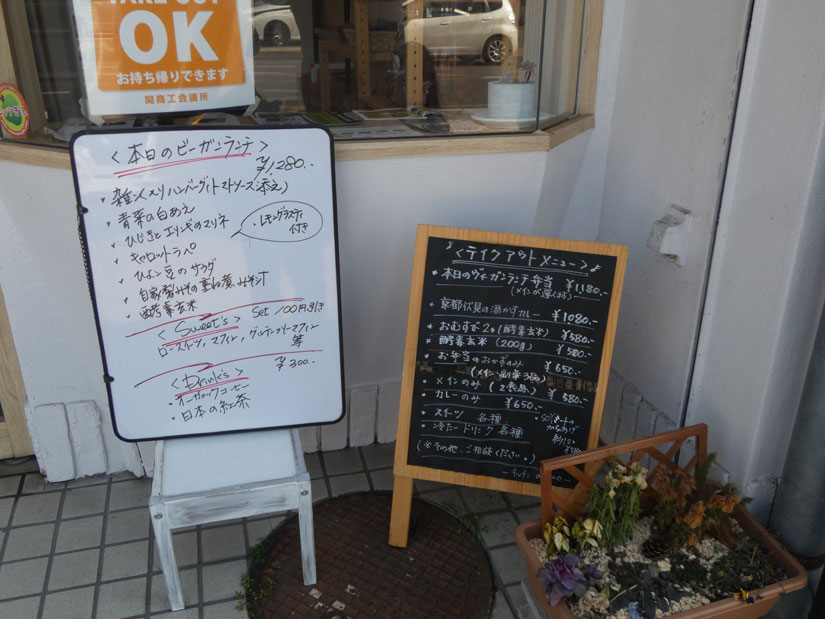 TAKE OUT
OK
お持ち帰りできます
関商工会議所
<本日のビーガンランチ>
¥1,280.-
・雑穀入りハンバーグ(トマトソース添え)
・青菜の白あえ
・ひじきとエリンギのマリネ
・レモングラスティ
付き
・キャロットラペ
・ひよこ豆のサラダ
・自家製みその重ね煮みそ汁
・酵素玄米
<Sweet's> Set 100円引き
ロースイーツ, マフィン, グルテンフリーマフィン
等
<Drink's> ¥300.-
・オーガニックコーヒー
・日本の紅茶
♪<テイクアウトメニュー>♪
・本日のヴィーガンランチ弁当 ¥1180.-
(メインが選べます)
・京都伏見の酒かすカレー ¥1080.-
・おむすび2ヶ(酵素玄米) ¥580.-
・酵素玄米(200g) ¥500.-
・お弁当のおかずのみ ¥650.-
(メイン・副菜3品)
・メインのみ (2食品) ¥580.-
・カレーのみ ¥650.-
・スイーツ 各種
・冷たードリンク各種
(※その他、ご相談ください。)